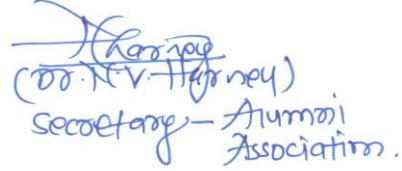 (Dr. N. V. Harney)
Secretary - Alumni
Association.